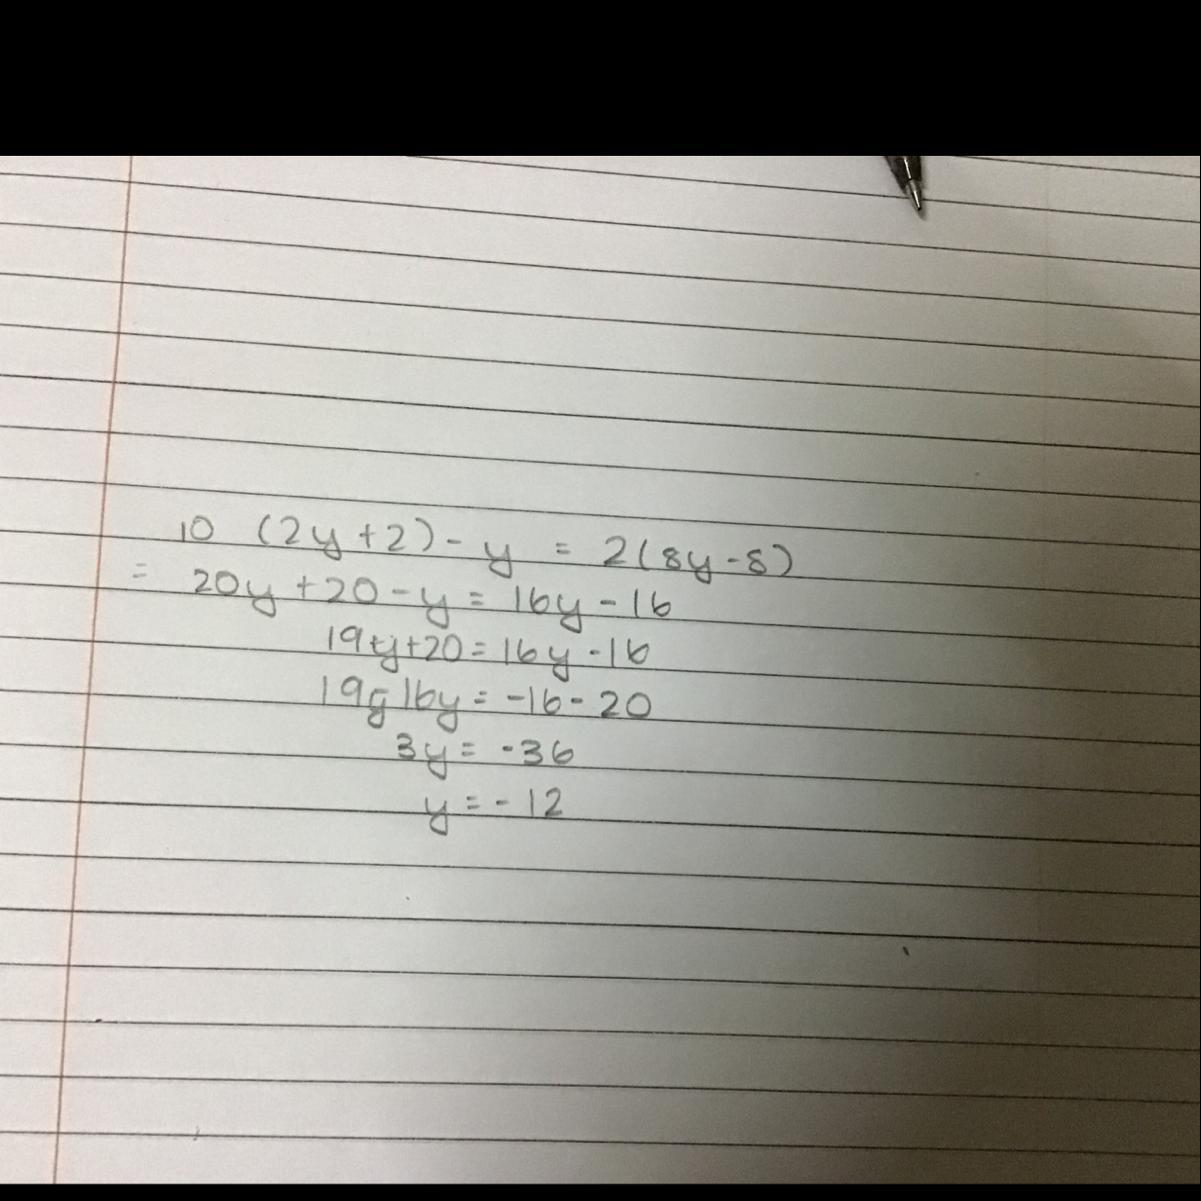 10 (2y+2)-y = 2(8y-8)
= 20y+20-y=16y-16
19y+20=16y-16
19y-16y=-16-20
3y=-36
y=-12